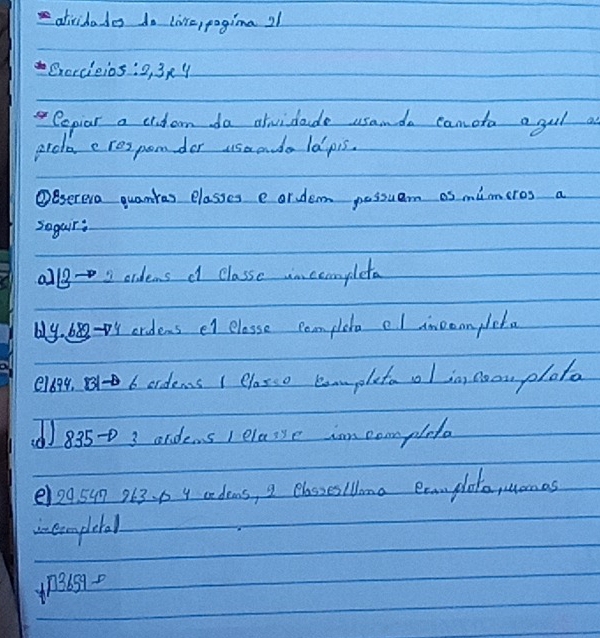 * atividades do livro, pagina 21
* Exercícios: 2, 3 e 4
* Copiar a ordem da atividade usando caneta azul ou
preta e responder usando lápis.
① Escreva quantas classes e ordem possuem os números a
seguir:
a) 12 → 2 ordens e 1 classe incompleta
b) 4.682 → 4 ordens e 1 classe completa e 1 incompleta
c) 694. 831 → 6 ordens 1 classe completa e 1 incompleta
d) 835 → 3 ordens 1 classe incompleta
e) 29.547 263 → 4 ordens, 2 classes (Uma completa, umas
incompleta)
f) 13659 →